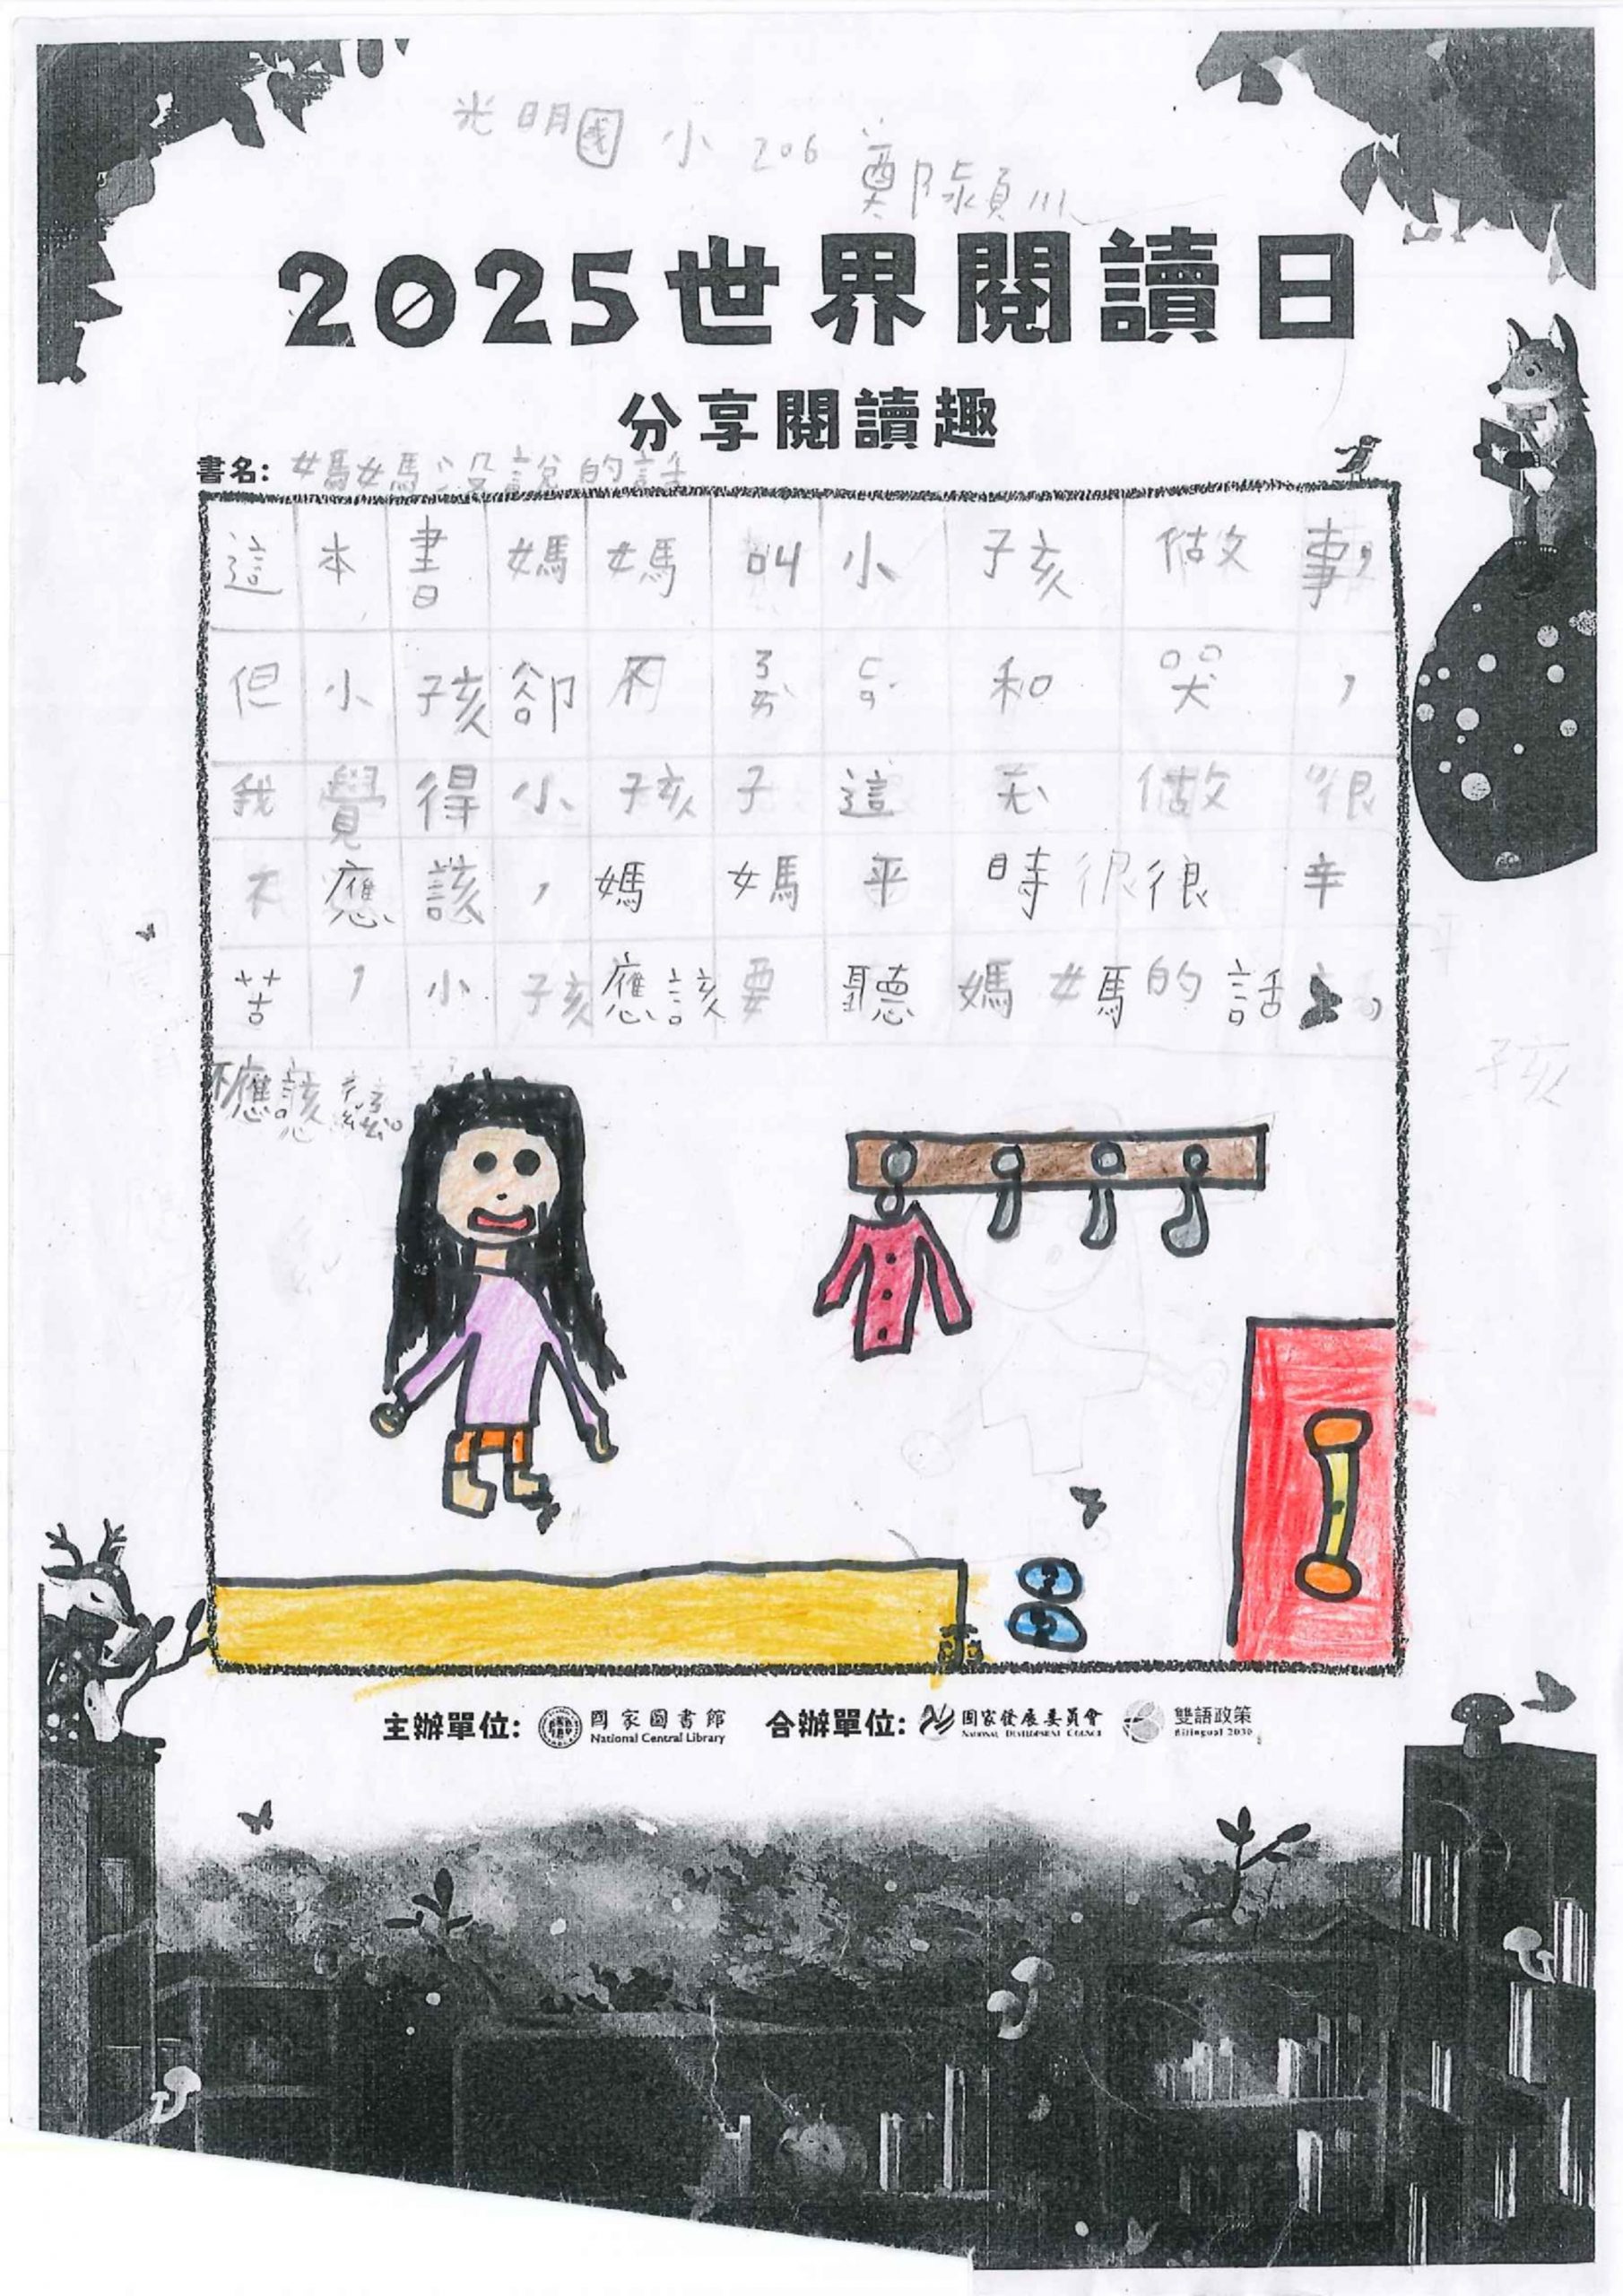 光明國小 206
鄭潁川
2025世界閱讀日
分享閱讀趣
書名: 媽媽沒說的話
這本書媽媽叫小孩做事,
但小孩卻不ㄋㄞˋ和哭,
我覺得小孩子這做很
不應該,媽媽平時很很辛
苦,小孩應該要聽媽媽的話。
不應該
孩
主辦單位: 國家圖書館 National Central Library 合辦單位: 國家發展委員會 NATIONAL DEVELOPMENT COUNCIL 雙語政策 Bilingual 2030